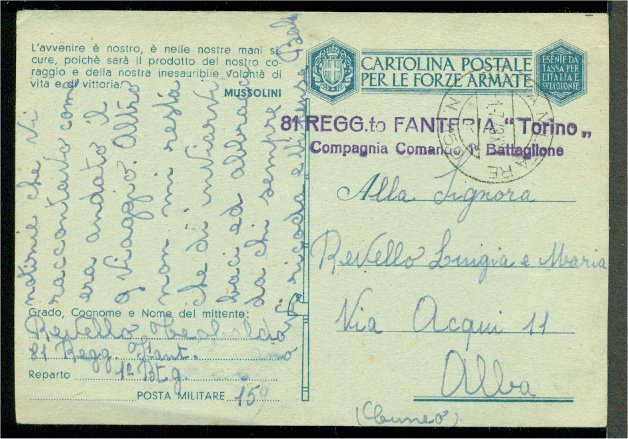 L'avvenire è nostro, è nelle nostre mani si-
cure, poichè sarà il prodotto del nostro co-
raggio e della nostra inesauribile volontà di
vita e di vittoria.
MUSSOLINI
CARTOLINA POSTALE
PER LE FORZE ARMATE
ESENTE DA
TASSA PER
L'ITALIA E
SUE COLONIE
81 REGG.to FANTERIA "Torino"
Compagnia Comando Battaglione
Alla Signora
Revello Luigia e Maria
Via Acqui 11
Alba
(Cuneo)
Grado, Cognome e Nome del mittente:
Revello
81 Regg. Fant.
Reparto 1º Btg.
POSTA MILITARE 152
notizie che vi
raccontato come
era andato il
viaggio. Altro
non mi resta
che di inviarvi
baci ed abbracci
da chi sempre
vi ricorda